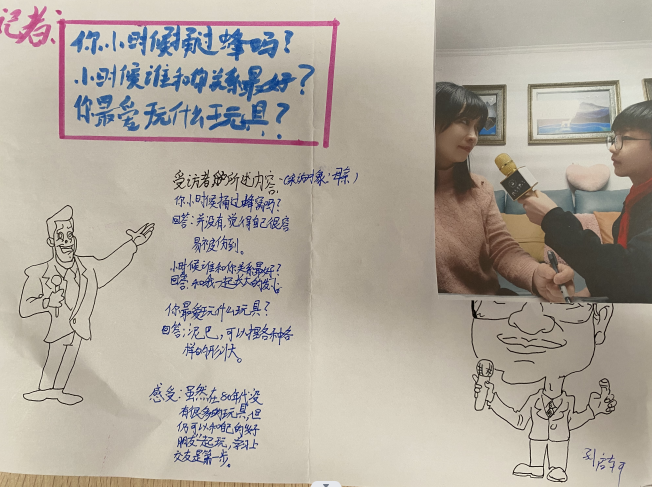 记者:
你小时候捅过蜂吗?
小时候谁和你关系最好?
你最爱玩什么玩具?
受访者所述内容:(采访对象:母亲)
你小时候捅过蜂窝吗?
回答:并没有,觉得自己很容
易被伤到。
小时候谁和你关系最好?
回答:和我一起长大的发小。
你最爱玩什么玩具?
回答:泥巴,可以捏各种各
样的形状。
感受:虽然在80年代没
有很多的玩具,但
仍可以和自己的好
朋友一起玩,学习上
交友是第一步。